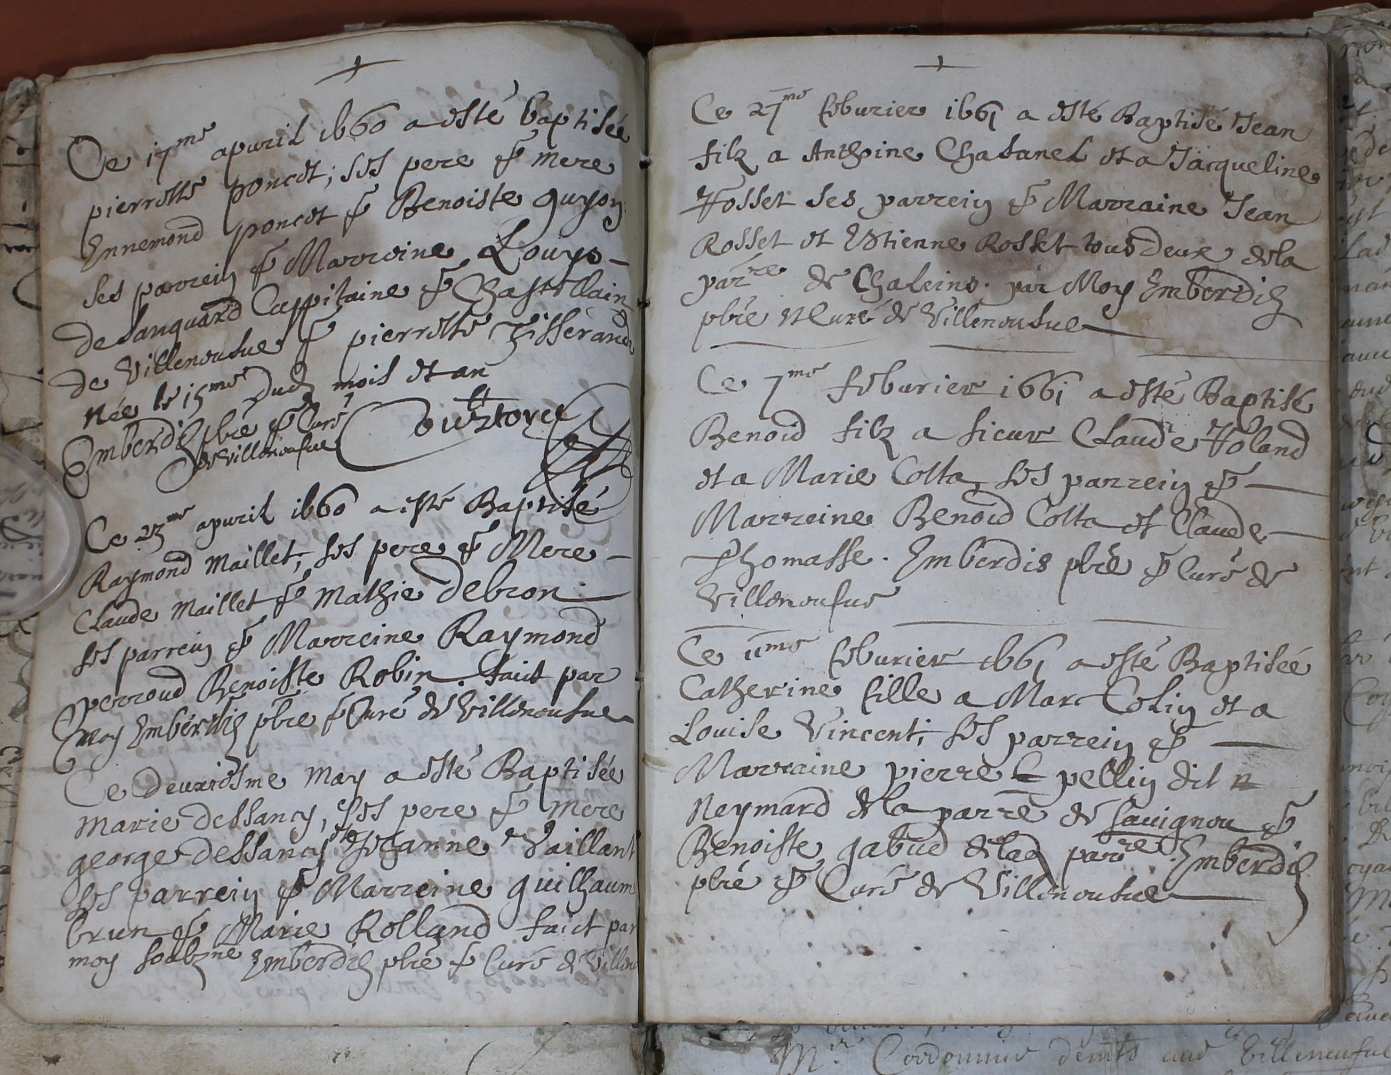 Ce 17me apuril 1660 a esté baptisée
pierrette poncet, ses pere & mere
Ennemond poncet & Benoiste guyon
ses parrein & Marraine Louys
de Sanguard Cappitaine & Chastellain
de Villeneufve & pierrette Tisserand
Née le 15me dud mois et an
Emberdis pbre & Curé
de Villeneufve
Ce 23me apuril 1660 a esté Baptisé
Raymond Maillet, ses pere & Mere
Claude Maillet & Mathie debron
ses parrein & Marreine Raymond
perroud Benoiste Robin. faict par
moy Emberdis pbre & Curé de Villeneufve
Ce deuxiesme may a esté Baptisée
Marie dessancy, ses pere & mere
george dessancy & Jeanne Vaillant
ses parrein & Marreine guilhaum
brun & Marie Rolland faict par
moy soubzne Emberdis pbre & Curé de Villene
Ce 27me feburier 1661 a esté Baptisé Jean
filz a Anthoine Chatanel et a Jacqueline
Fosset ses parrein & Marraine Jean
Rosset et Estienne Rosset tous deux de la
parre de Chaleins. par Moy Emberdis
pbre et Curé de Villeneufve
Ce 7me feburier 1661 a esté Baptisé
Benoid filz a sieur Claude Foland
et a Marie Cotta, ses parrein &
Marreine Benoid Cotta et Claude
Thomasse. Emberdis pbre & Curé de
Villeneufve
Ce 11me feburier 1661 a esté Baptisée
Catherine fille a Marc Colin et a
Louise Vincent, ses parrein &
Marraine pierre pellin dit
Neymard de la parre de Sauignou &
Benoiste gabud de lad parre Emberdis
pbré & Curé de Villeneufve